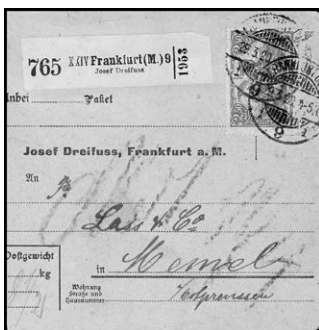 765 XXIV Frankfurt (M.) 9
Josef Dreifuss
1953
Inbei Paket
Josef Dreifuss, Frankfurt a. M.
An
Lass & Co
Postgewicht
kg
in Memel
Wohnung
Straße und
Hausnummer
Ostpreussen